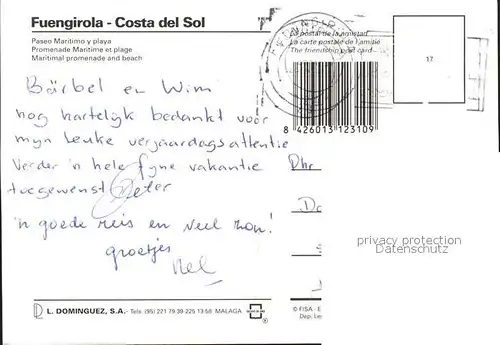 Fuengirola - Costa del Sol
Paseo Marítimo y playa
Promenade Maritime et plage
Maritimal promenade and beach
La postal de la amistad
La carte postale de l'amitié
The friendship post card
17
8 426013 123109
Bärbel en Wim
nog hartelijk bedankt voor
mijn leuke verjaardagsattentie
Verder 'n hele fijne vakantie
toegewenst Peter
'n goede reis en veel zon!
groetjes
Nel
Dhr
privacy protection
Datenschutz
L. DOMINGUEZ, S.A. - Telé. (95) 221 79 39 - 225 13 58 MALAGA
®
© FISA - E
Dep. Le